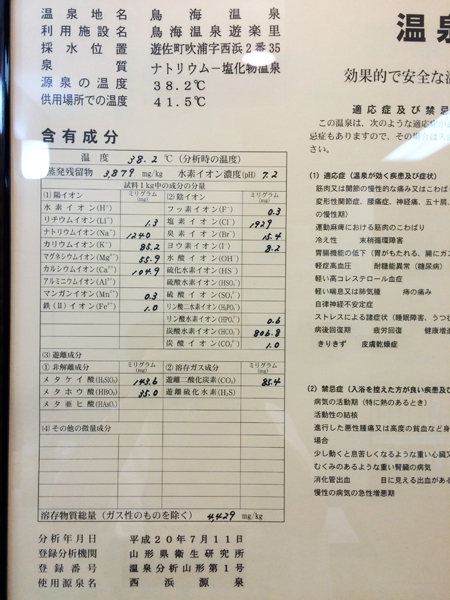 温泉地名 鳥海温泉
利用施設名 鳥海温泉遊楽里
採水位置 遊佐町吹浦字西浜2番35
泉質 ナトリウム－塩化物温泉
源泉の温度 38.2℃
供用場所での温度 41.5℃
含有成分
温度 38.2 ℃(分析時の温度)
蒸発残留物 3,879 mg/kg 水素イオン濃度(pH) 7.2
試料1kg中の成分の分量
(1) 陽イオン ミリグラム(mg) (2) 陰イオン ミリグラム(mg)
水素イオン(H⁺) フッ素イオン(F⁻) 0.3
リチウムイオン(Li⁺) 1.3 塩素イオン(Cl⁻) 1929
ナトリウムイオン(Na⁺) 1240 臭素イオン(Br⁻) 15.4
カリウムイオン(K⁺) 85.2 ヨウ素イオン(I⁻) 8.2
マグネシウムイオン(Mg²⁺) 55.9 水酸イオン(OH⁻)
カルシウムイオン(Ca²⁺) 104.9 硫化水素イオン(HS⁻)
アルミニウムイオン(Al³⁺) 硫酸水素イオン(HSO₄⁻)
マンガンイオン(Mn²⁺) 0.3 硫酸イオン(SO₄²⁻)
鉄(Ⅱ)イオン(Fe²⁺) 1.0 リン酸二水素イオン(H₂PO₄⁻)
リン酸水素イオン(HPO₄²⁻) 0.6
炭酸水素イオン(HCO₃⁻) 806.8
炭酸イオン(CO₃²⁻) 1.0
(3) 遊離成分
① 非解離成分 ミリグラム(mg) ② 溶存ガス成分 ミリグラム(mg)
メタケイ酸(H₂SiO₃) 143.6 遊離二酸化炭素(CO₂) 85.4
メタホウ酸(HBO₂) 35.0 遊離硫化水素(H₂S)
メタ亜ヒ酸(HAsO₂)
(4) その他の微量成分
溶存物質総量(ガス性のものを除く) 4,429 mg/kg
分析年月日 平成20年7月11日
登録分析機関 山形県衛生研究所
登録番号 温泉分析山形第1号
使用源泉名 西浜源泉
温泉
効果的で安全な
適応症及び禁忌
この温泉は、次のような適応症が
忌症もありますので、その場合は入
さい。
(1) 適応症(温泉が効く疾患及び症状)
筋肉又は関節の慢性的な痛み又はこわば
変形性関節症、腰痛症、神経痛、五十肩、
の慢性期)
運動麻痺における筋肉のこわばり
冷え性 末梢循環障害
胃腸機能の低下(胃がもたれる、腸にガス
軽症高血圧 耐糖能異常(糖尿病)
軽い高コレステロール血症
軽い喘息又は肺気腫 痔の痛み
自律神経不安定症
ストレスによる諸症状(睡眠障害、うつ状
病後回復期 疲労回復 健康増進
きりきず 皮膚乾燥症
(2) 禁忌症(入浴を控えた方が良い疾患及び
病気の活動期(特に熱のあるとき)
活動性の結核
進行した悪性腫瘍又は高度の貧血など身
場合
少し動くと息苦しくなるような重い心臓又
むくみのあるような重い腎臓の病気
消化管出血 目に見える出血がある
慢性の病気の急性増悪期